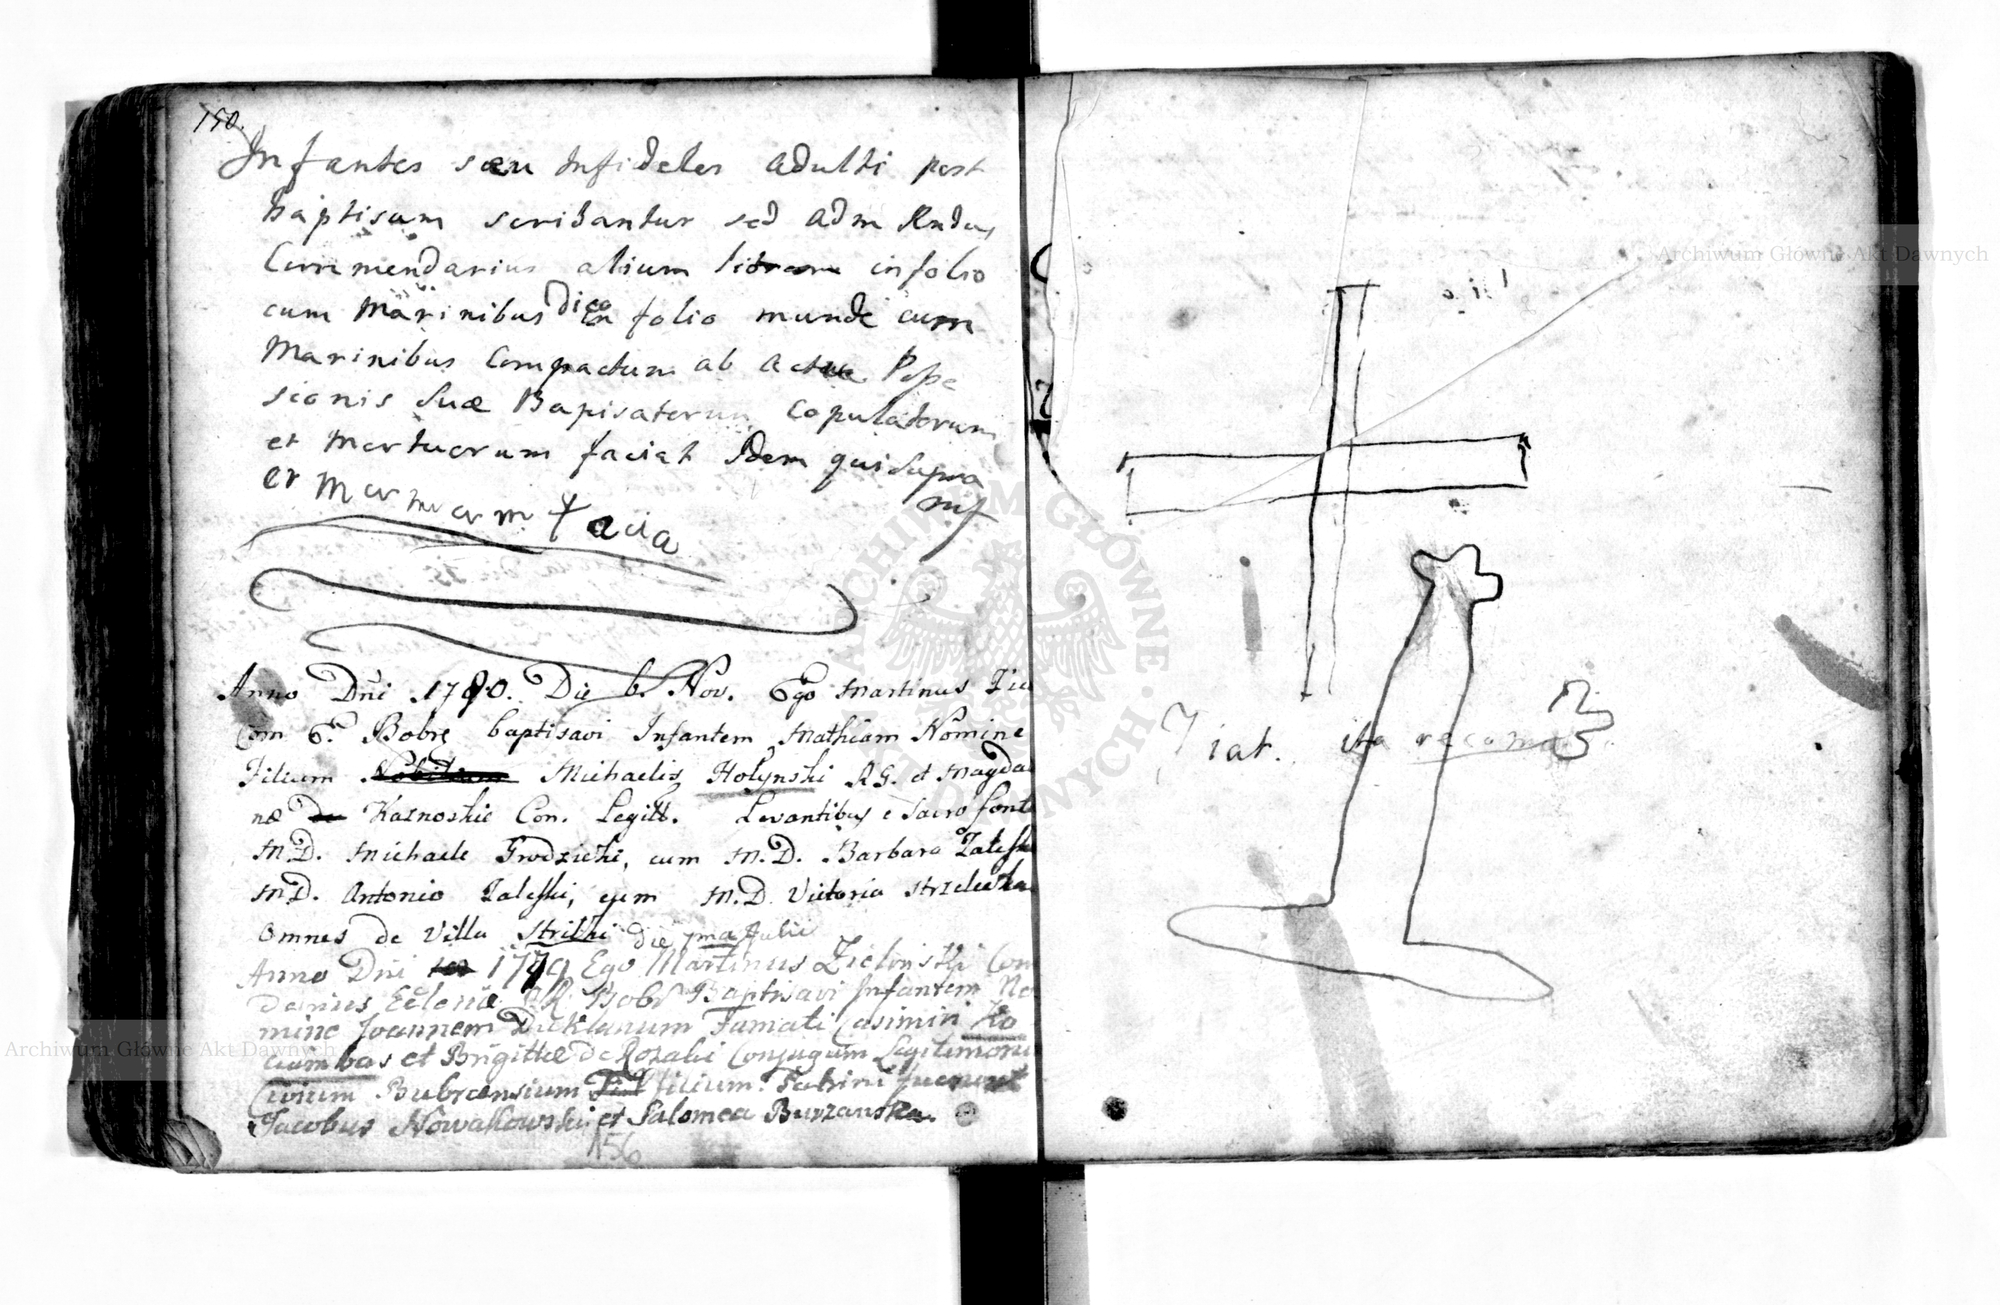 150.
Infantes seu Infideles adulti post
baptisam scribantur sed Adm Rndus
Commendarius alium librum in folio
cum Marinibus dico in folio munde cum
Marinibus Compactum ab actu Posse
sionis Suæ Bapisatorum Copulatorum
et Mortuorum faciat Idem qui supra
mf
et facia
Anno Dñi 1780. Die 6. Nov. Ego Martinus
Com E. Bobrę baptisavi Infantem Mathiam Nomine
Filium Nobilium Michaelis Hołynski et Magda
næ de Kaznoskie Con. Legitt. Levantibus e Sacro fonte
M.D. Michaele Grodzicki, cum M.D. Barbara Zaleska
M.D. Antonio Zaleski, cum M.D. Victoria
Omnes de Villa Strilki die 1ma Julii
Anno Dñi 1779 Ego Martinus Zielinski Com
darius Bobr Baptisavi Infantem No
mine Joannem Famati Casimiri Ko
et Brigittæ de Rozalii Conjugum Legitimoru
Civium Bubrcensium Filium. Patrini fuerunt
Jacobus Nowakowski et Salomea Burzanska.
N56
Fiat. ita
Archiwum Główne Akt Dawnych
Archiwum Główne Akt Dawnych
ARCHIWUM GŁÓWNE AKT DAWNYCH